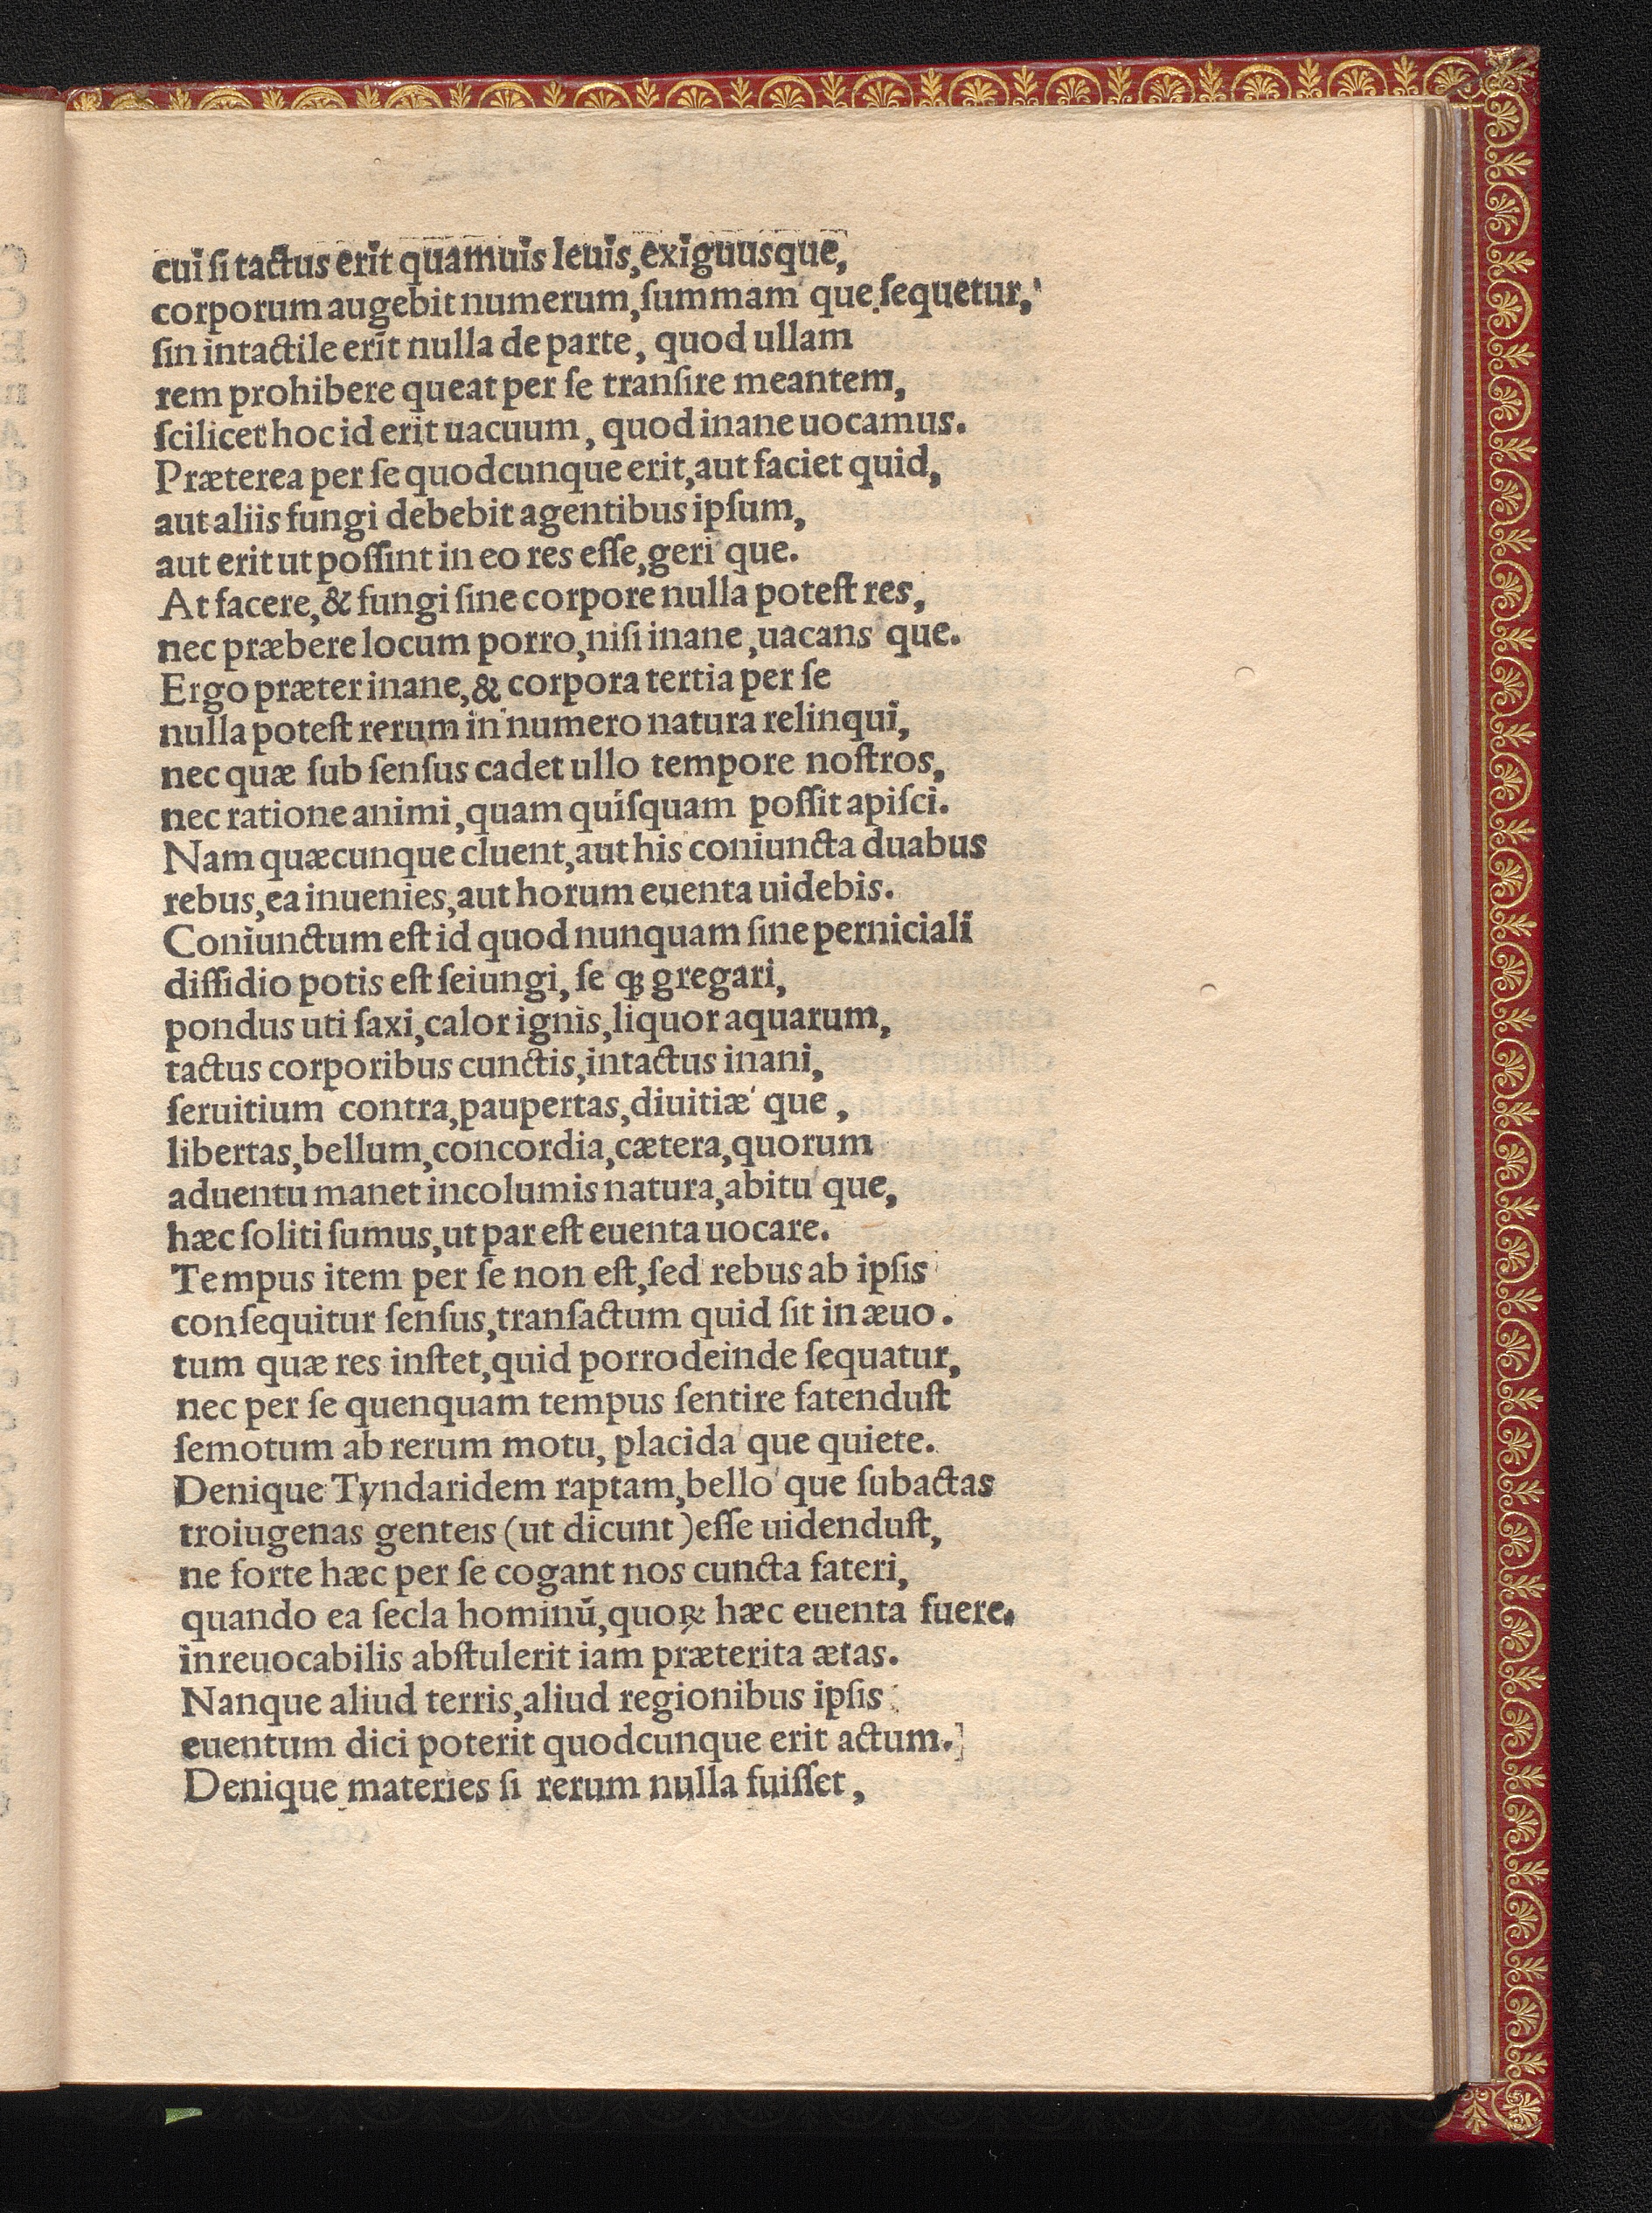 cui ſi tactus erit quamuis leuis, exiguusque,
corporum augebit numerum, ſummam' que ſequetur,
ſin intactile erit nulla de parte, quod ullam
rem prohibere queat per ſe tranſire meantem,
ſcilicet hoc id erit uacuum, quod inane uocamus.
Præterea per ſe quodcunque erit, aut faciet quid,
aut aliis fungi debebit agentibus ipſum,
aut erit ut poſſint in eo res eſſe, geri' que.
At facere, & fungi ſine corpore nulla poteſt res,
nec præbere locum porro, niſi inane, uacans' que.
Ergo præter inane, & corpora tertia per ſe
nulla poteſt rerum in numero natura relinqui,
nec quæ ſub ſenſus cadet ullo tempore noſtros,
nec ratione animi, quam quiſquam poſſit apiſci.
Nam quæcunque cluent, aut his coniuncta duabus
rebus, ea inuenies, aut horum euenta uidebis.
Coniunctum eſt id quod nunquam ſine perniciali
diſſidio potis eſt ſeiungi, ſe' qꝫ gregari,
pondus uti ſaxi, calor ignis, liquor aquarum,
tactus corporibus cunctis, intactus inani,
ſeruitium contra, paupertas, diuitiæ' que,
libertas, bellum, concordia, cætera, quorum
aduentu manet incolumis natura, abitu' que,
hæc ſoliti ſumus, ut par eſt euenta uocare.
Tempus item per ſe non eſt, ſed rebus ab ipſis
conſequitur ſenſus, tranſactum quid ſit in æuo.
tum quæ res inſtet, quid porro deinde ſequatur,
nec per ſe quenquam tempus ſentire fatenduſt
ſemotum ab rerum motu, placida' que quiete.
Denique Tyndaridem raptam, bello' que ſubactas
troiugenas genteis (ut dicunt) eſſe uidenduſt,
ne forte hæc per ſe cogant nos cuncta fateri,
quando ea ſecla hominū, quoꝝ hæc euenta fuere.
inreuocabilis abſtulerit iam præterita ætas.
Nanque aliud terris, aliud regionibus ipſis
euentum dici poterit quodcunque erit actum.
Denique materies ſi rerum nulla fuiſſet,